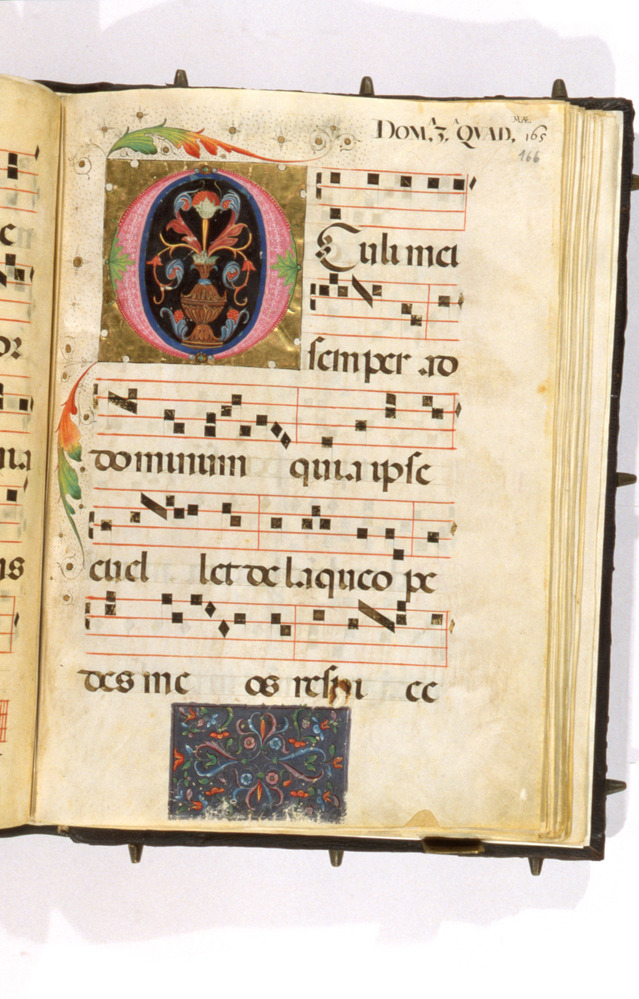 DOM, 3, QVAD, 165
166
O Culi mei
semper ad
dominum quia ipse
evel let de laqueo pe
des me os respi ce